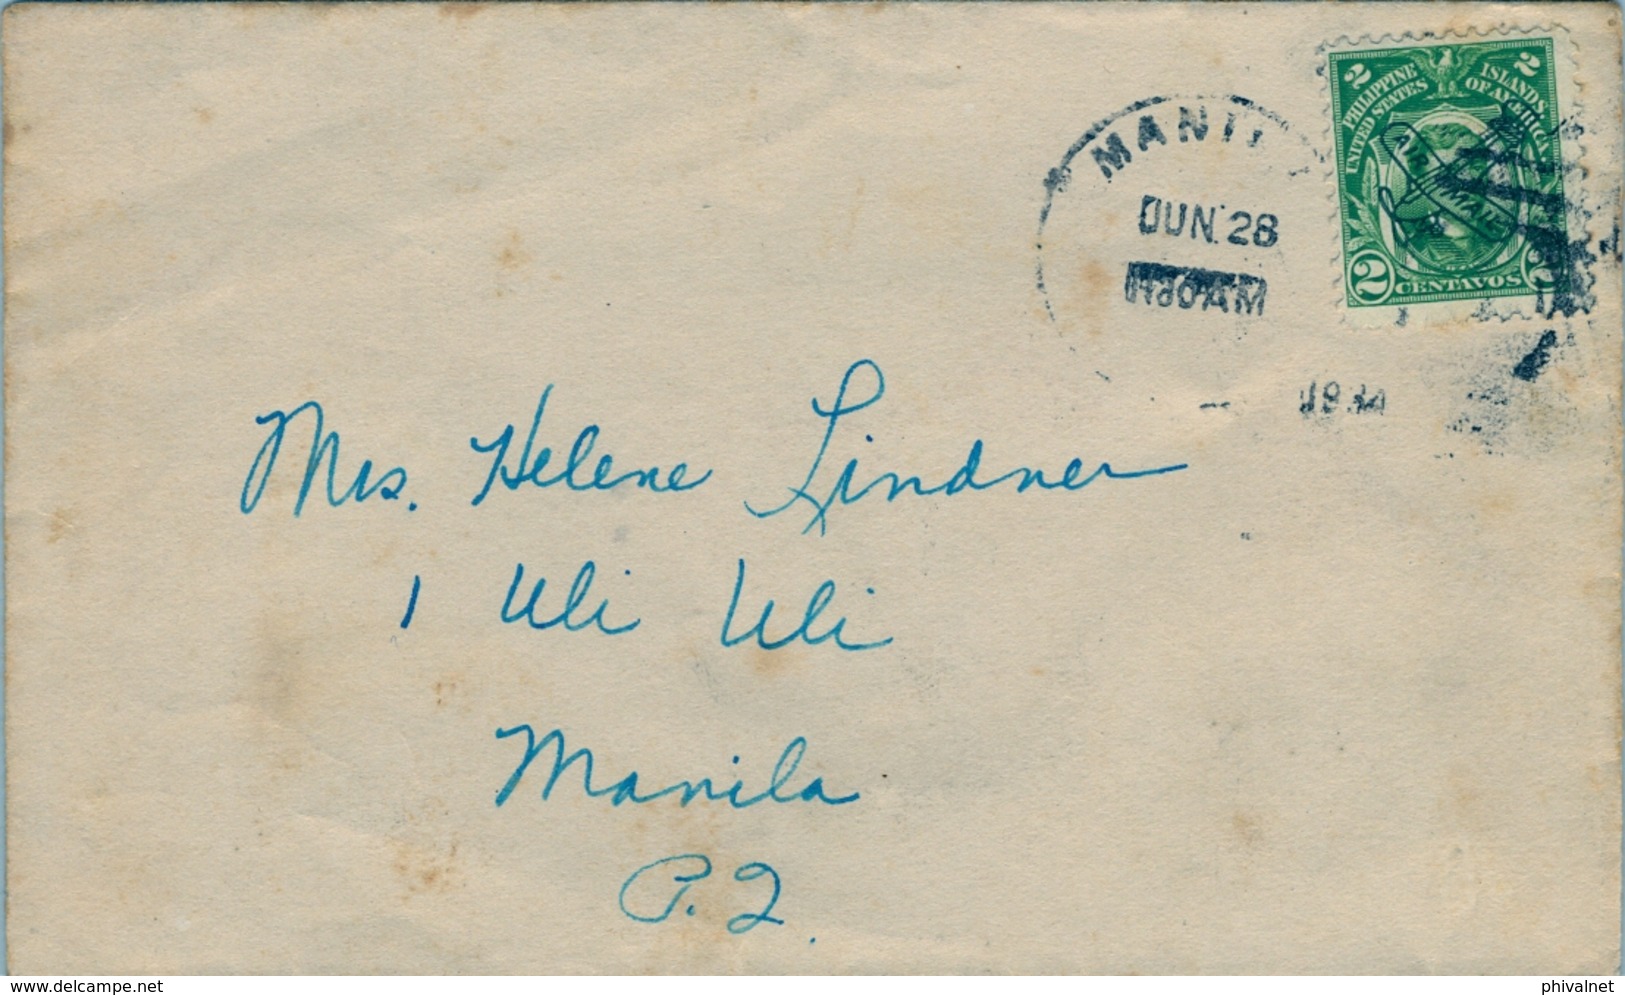 2 PHILIPPINE ISLANDS 2
UNITED STATES OF AMERICA
AIR MAIL
2 CENTAVOS 2
MANIL
JUN 28
AM
Mrs. Helene Lindner
1 Uli Uli
Manila
P.I.
www.delcampe.net
phivalnet